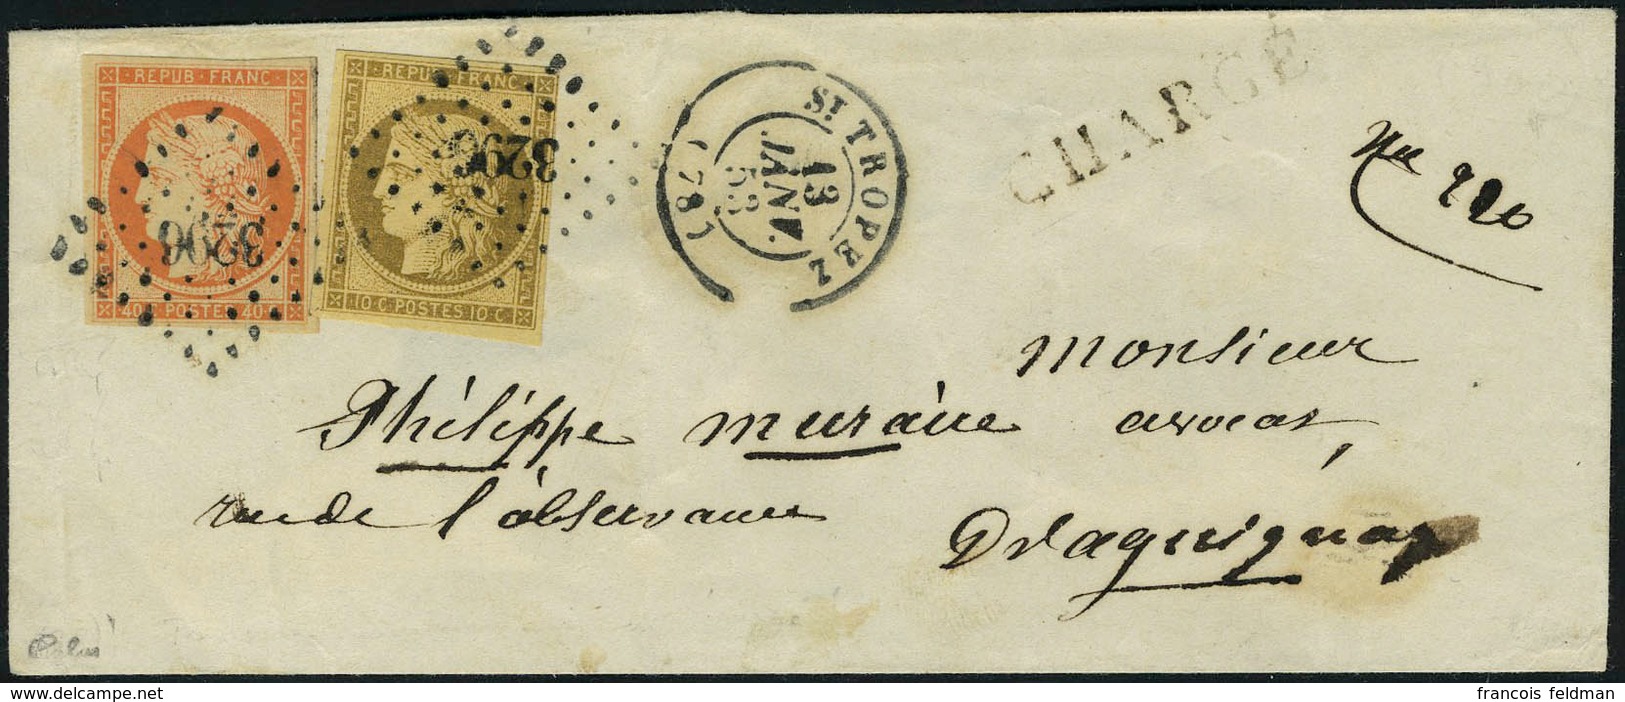 REPUB·FRANC
40 C POSTES 40 C
3296
REPUB·FRANC
10 C POSTES 10 C
3296
ST TROPEZ
13
JANV.
53
(78)
CHARGÉ
Monsieur
Philippe Muraire avocat,
rue de l'observance
Draguignan
www.delcampe.net
francois feldman